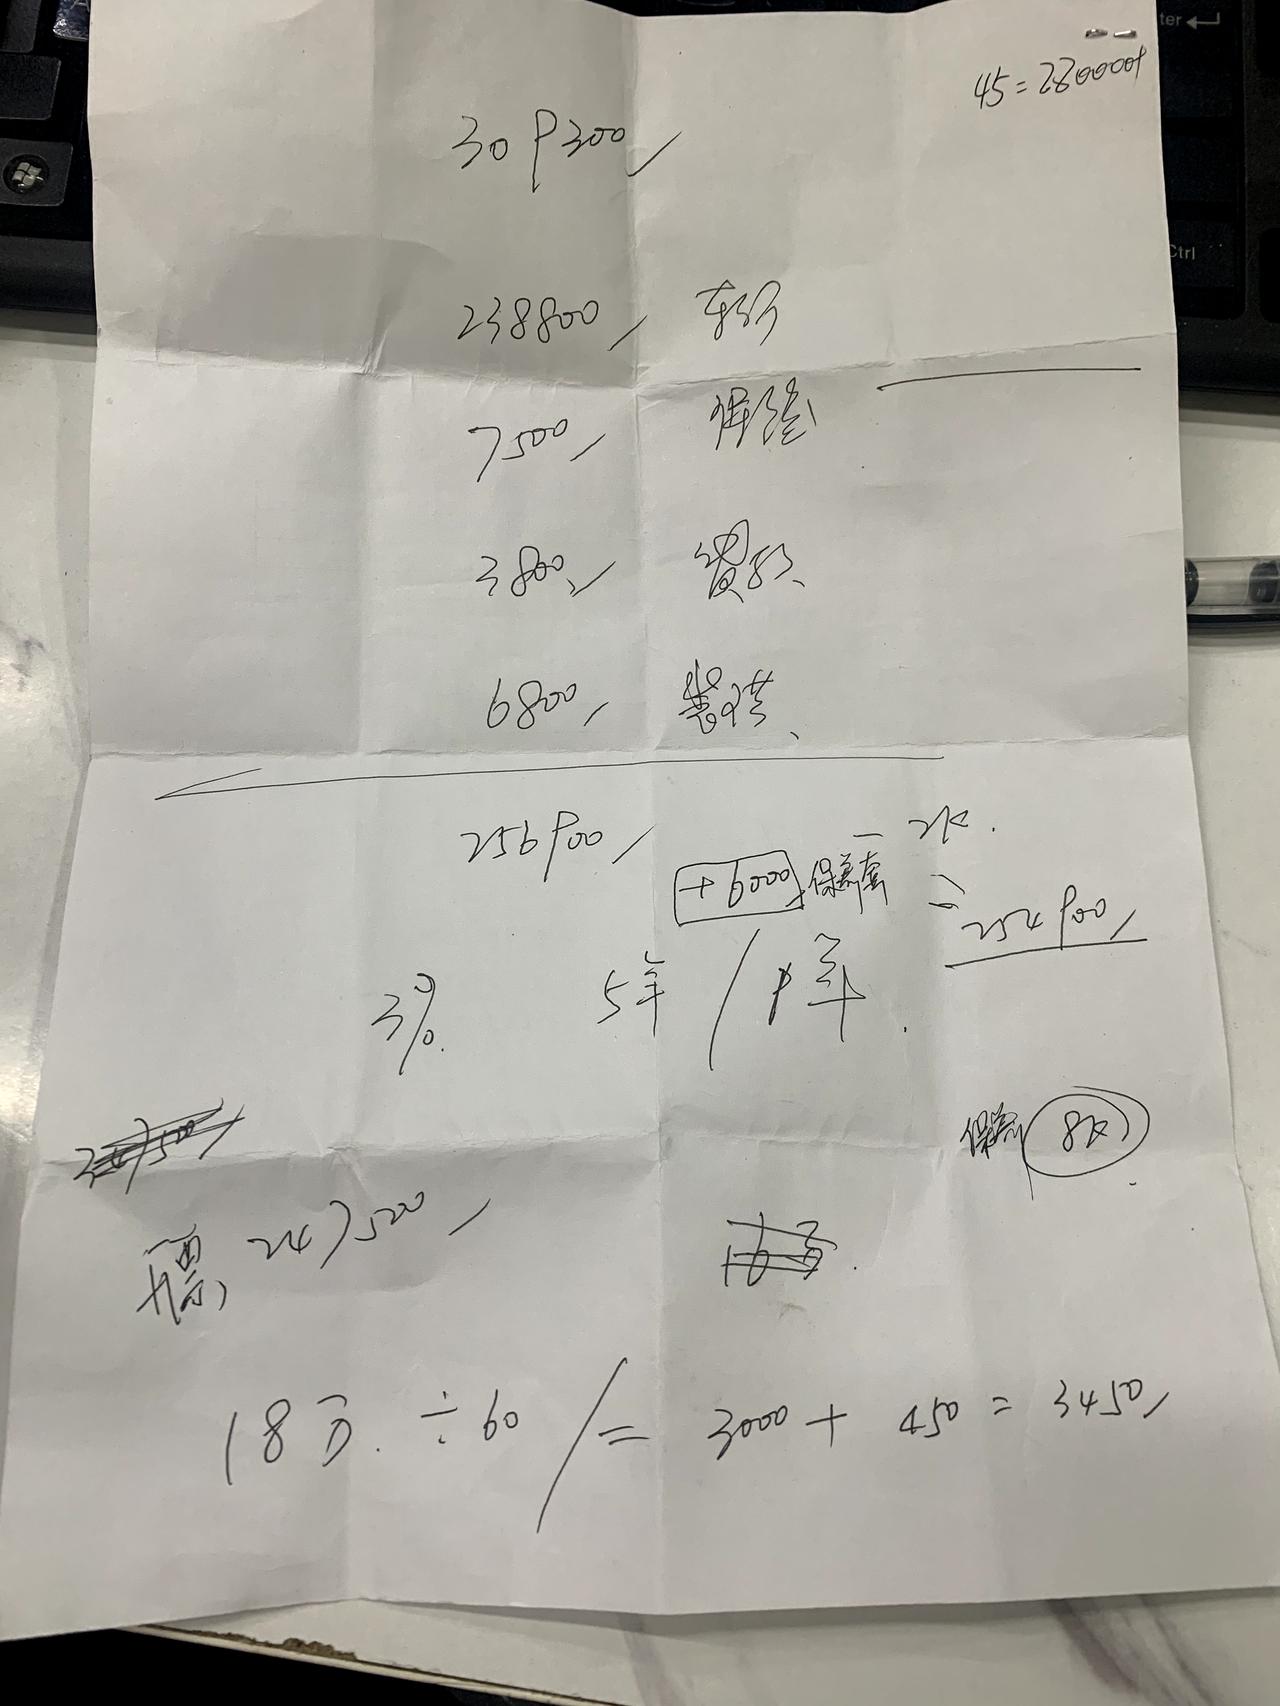 45=280000
30P300
238800, 车价
7500, 保险
3800,
6800, 装潢
256900, - 2K.
+6000 保养套 = 254900,
3%. 5年 / 1年.
保养 8K
票, 247500,
18万. ÷60 / = 3000 + 450 = 3450,
Enter
Ctrl